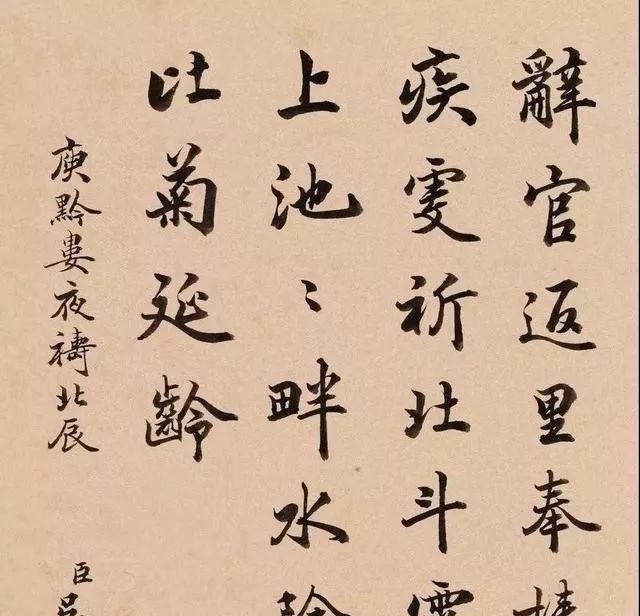 辭官返里奉
疾虔祈北斗
上池〻畔水
比菊延齡
庾黔婁夜禱北辰
臣